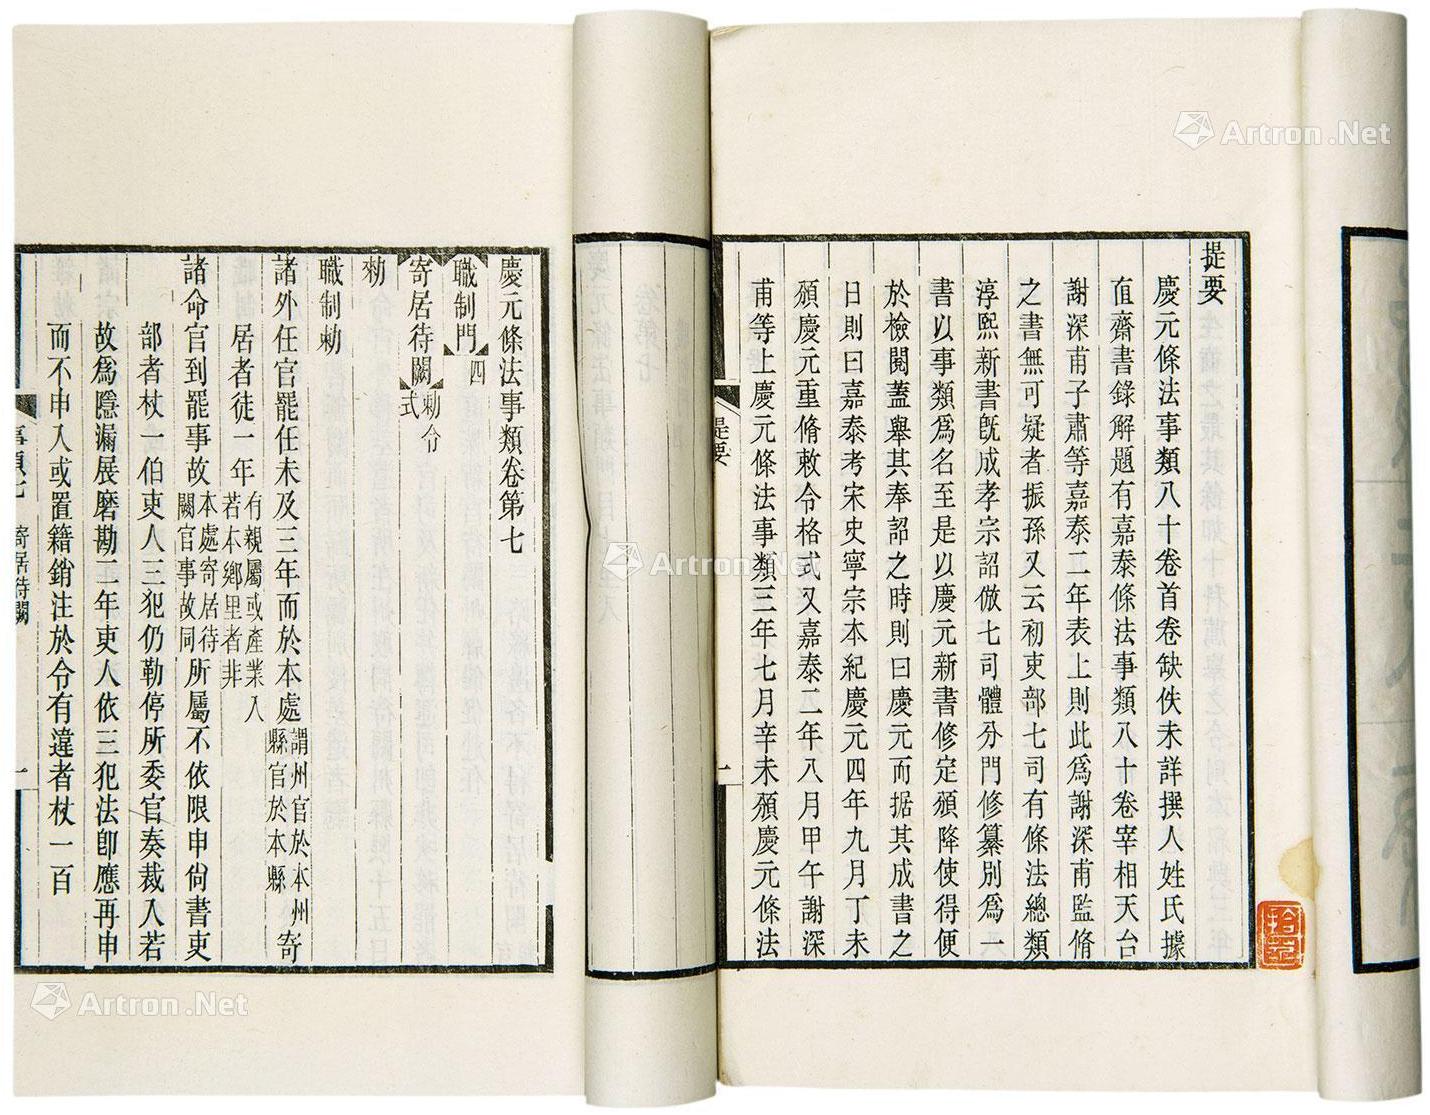 提要
慶元條法事類八十卷首卷缺佚未詳撰人姓氏據
直齋書錄解題有嘉泰條法事類八十卷宰相天台
謝深甫子肅等嘉泰二年表上則此爲謝深甫監脩
之書無可疑者振孫又云初吏部七司有條法總類
淳熙新書旣成孝宗詔倣七司體分門修纂別爲一
書以事類爲名至是以慶元新書修定頒降使得便
於檢閱蓋舉其奉詔之時則曰慶元而据其成書之
日則曰嘉泰考宋史寧宗本紀慶元四年九月丁未
頒慶元重脩敕令格式又嘉泰二年八月甲午謝深
甫等上慶元條法事類三年七月辛未頒慶元條法
提要
一
慶元條法事類卷第七
職制門四
寄居待闕
勑令
式
勑
職制勑
諸外任官罷任未及三年而於本處
謂州官於本州
縣官於本縣
寄
居者徒一年
有親屬或產業入
若本鄉里者非
諸命官到罷事故
本處寄居待
闕官事故同
所屬不依限申尙書吏
部者杖一伯吏人三犯仍勒停所委官奏裁入若
故爲隱漏展磨勘二年吏人依三犯法卽應再申
而不申入或置籍銷注於令有違者杖一百
事類七
寄居待闕
一
Artron.Net
Artron.Net
Artron.Net